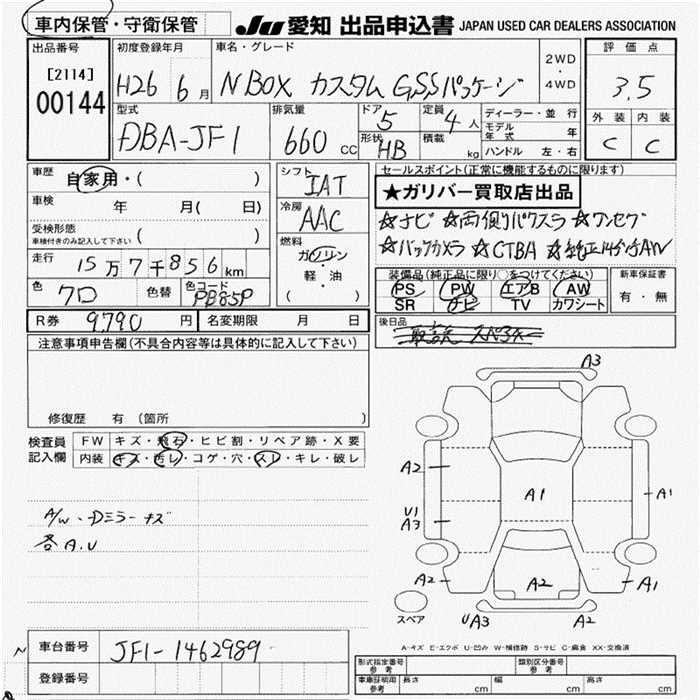 車内保管・守衛保管
JU 愛知 出品申込書 JAPAN USED CAR DEALERS ASSOCIATION
出品番号 初度登録年月 車名・グレード 評価点
[2114]
00144
H26 6月 N BOX カスタム G.SSパッケージ 2WD・4WD 3.5
型式 排気量 ドア 定員 ディーラー・並行 外装 内装
DBA-JF1 660cc 5 4人 モデル年式 年 C C
形状 積載
HB kg ハンドル 左・右
車歴 自家用・( ) シフト セールスポイント(正常に機能するものに限ります)
IAT
★ガリバー買取店出品
車検 年 月( 日) 冷房
AAC
☆ナビ ☆両側パワスラ ☆ワンセグ
受検形態 ( )
車検付きのみ記入して下さい
☆バックカメラ ☆CTBA ☆純正14インチAW
燃料
ガソリン・軽・油
( )
走行 15万7千856km
装備品(純正品に限り○をつけてください) 新車保証書
PS PW エアB AW 有・無
SR ナビ TV カワシート
色 クロ 色替 色コード PB85P
R券 9,790円 名変期限 月 日
後日品
取説 スペアキー
注意事項申告欄(不具合内容等は具体的に記入して下さい)
修復歴 有(箇所 )
検査員記入欄
FW キズ・飛石・ヒビ割・リペア跡・X要
内装 キズ・汚レ・コゲ・穴・スレ・キレ・破レ
A/W・Dミラーキズ
各A.U
A3
A2
A1
A1
U1
A3
A2
A2
A1
スペア
UA3
A2
A-キズ E-エクボ U-凹み W-補修跡 S-サビ C-腐食 XX-交換済
車台番号 JF1-1462989
登録番号
形式指定番号 参考 類別区分番号 参考
車庫証明用 参考 長さ cm 幅 cm 高さ cm